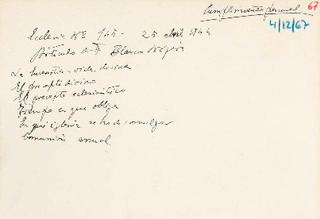 Cumplimiento pascual
67
4/12/67
Ecclesia Nº 145 - 22 abril 1944
Artículo de F. Blanco Nájera
La Eucaristía - vida divina
El precepto divino
El precepto eclesiástico
Tiempo en que obliga
En qué iglesia se ha de comulgar
Comunión anual